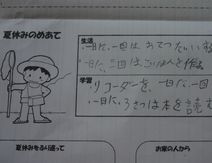 夏休みのめあて
生活
一日に一回は、おてつだい
一日に、三回は、ごはんを作る
学習
リコーダーを、一日に一回
一日に、ろさつは本を読む
夏休みをふり返って
お家の人から